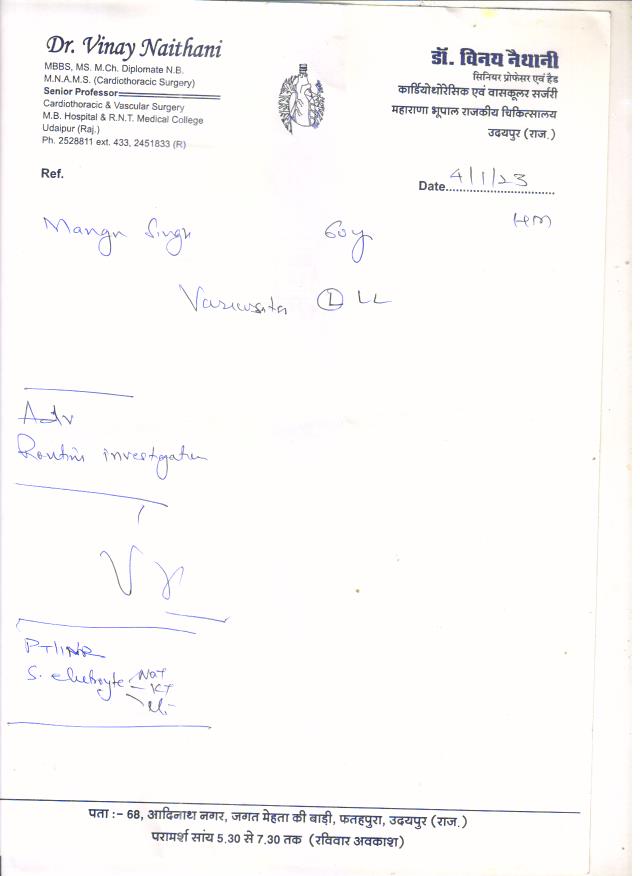 Dr. Vinay Naithani
MBBS, MS. M.Ch. Diplomate N.B.
M.N.A.M.S. (Cardiothoracic Surgery)
Senior Professor
Cardiothoracic & Vascular Surgery
M.B. Hospital & R.N.T. Medical College
Udaipur (Raj.)
Ph. 2528811 ext. 433, 2451833 (R)
डॉ. विनय नैथानी
सिनियर प्रोफेसर एवं हैड
कार्डियोथोरेसिक एवं वासकूलर सर्जरी
महाराणा भूपाल राजकीय चिकित्सालय
उदयपुर (राज.)
Ref.
Date 4/1/23
Mangu Singh 60y HM
(L) LL
Adv
Routine investigation
PT/INR
S. electroyte Na+
K+
पता :– 68, आदिनाथ नगर, जगत मेहता की बाड़ी, फतहपुरा, उदयपुर (राज.)
परामर्श सांय 5.30 से 7.30 तक (रविवार अवकाश)